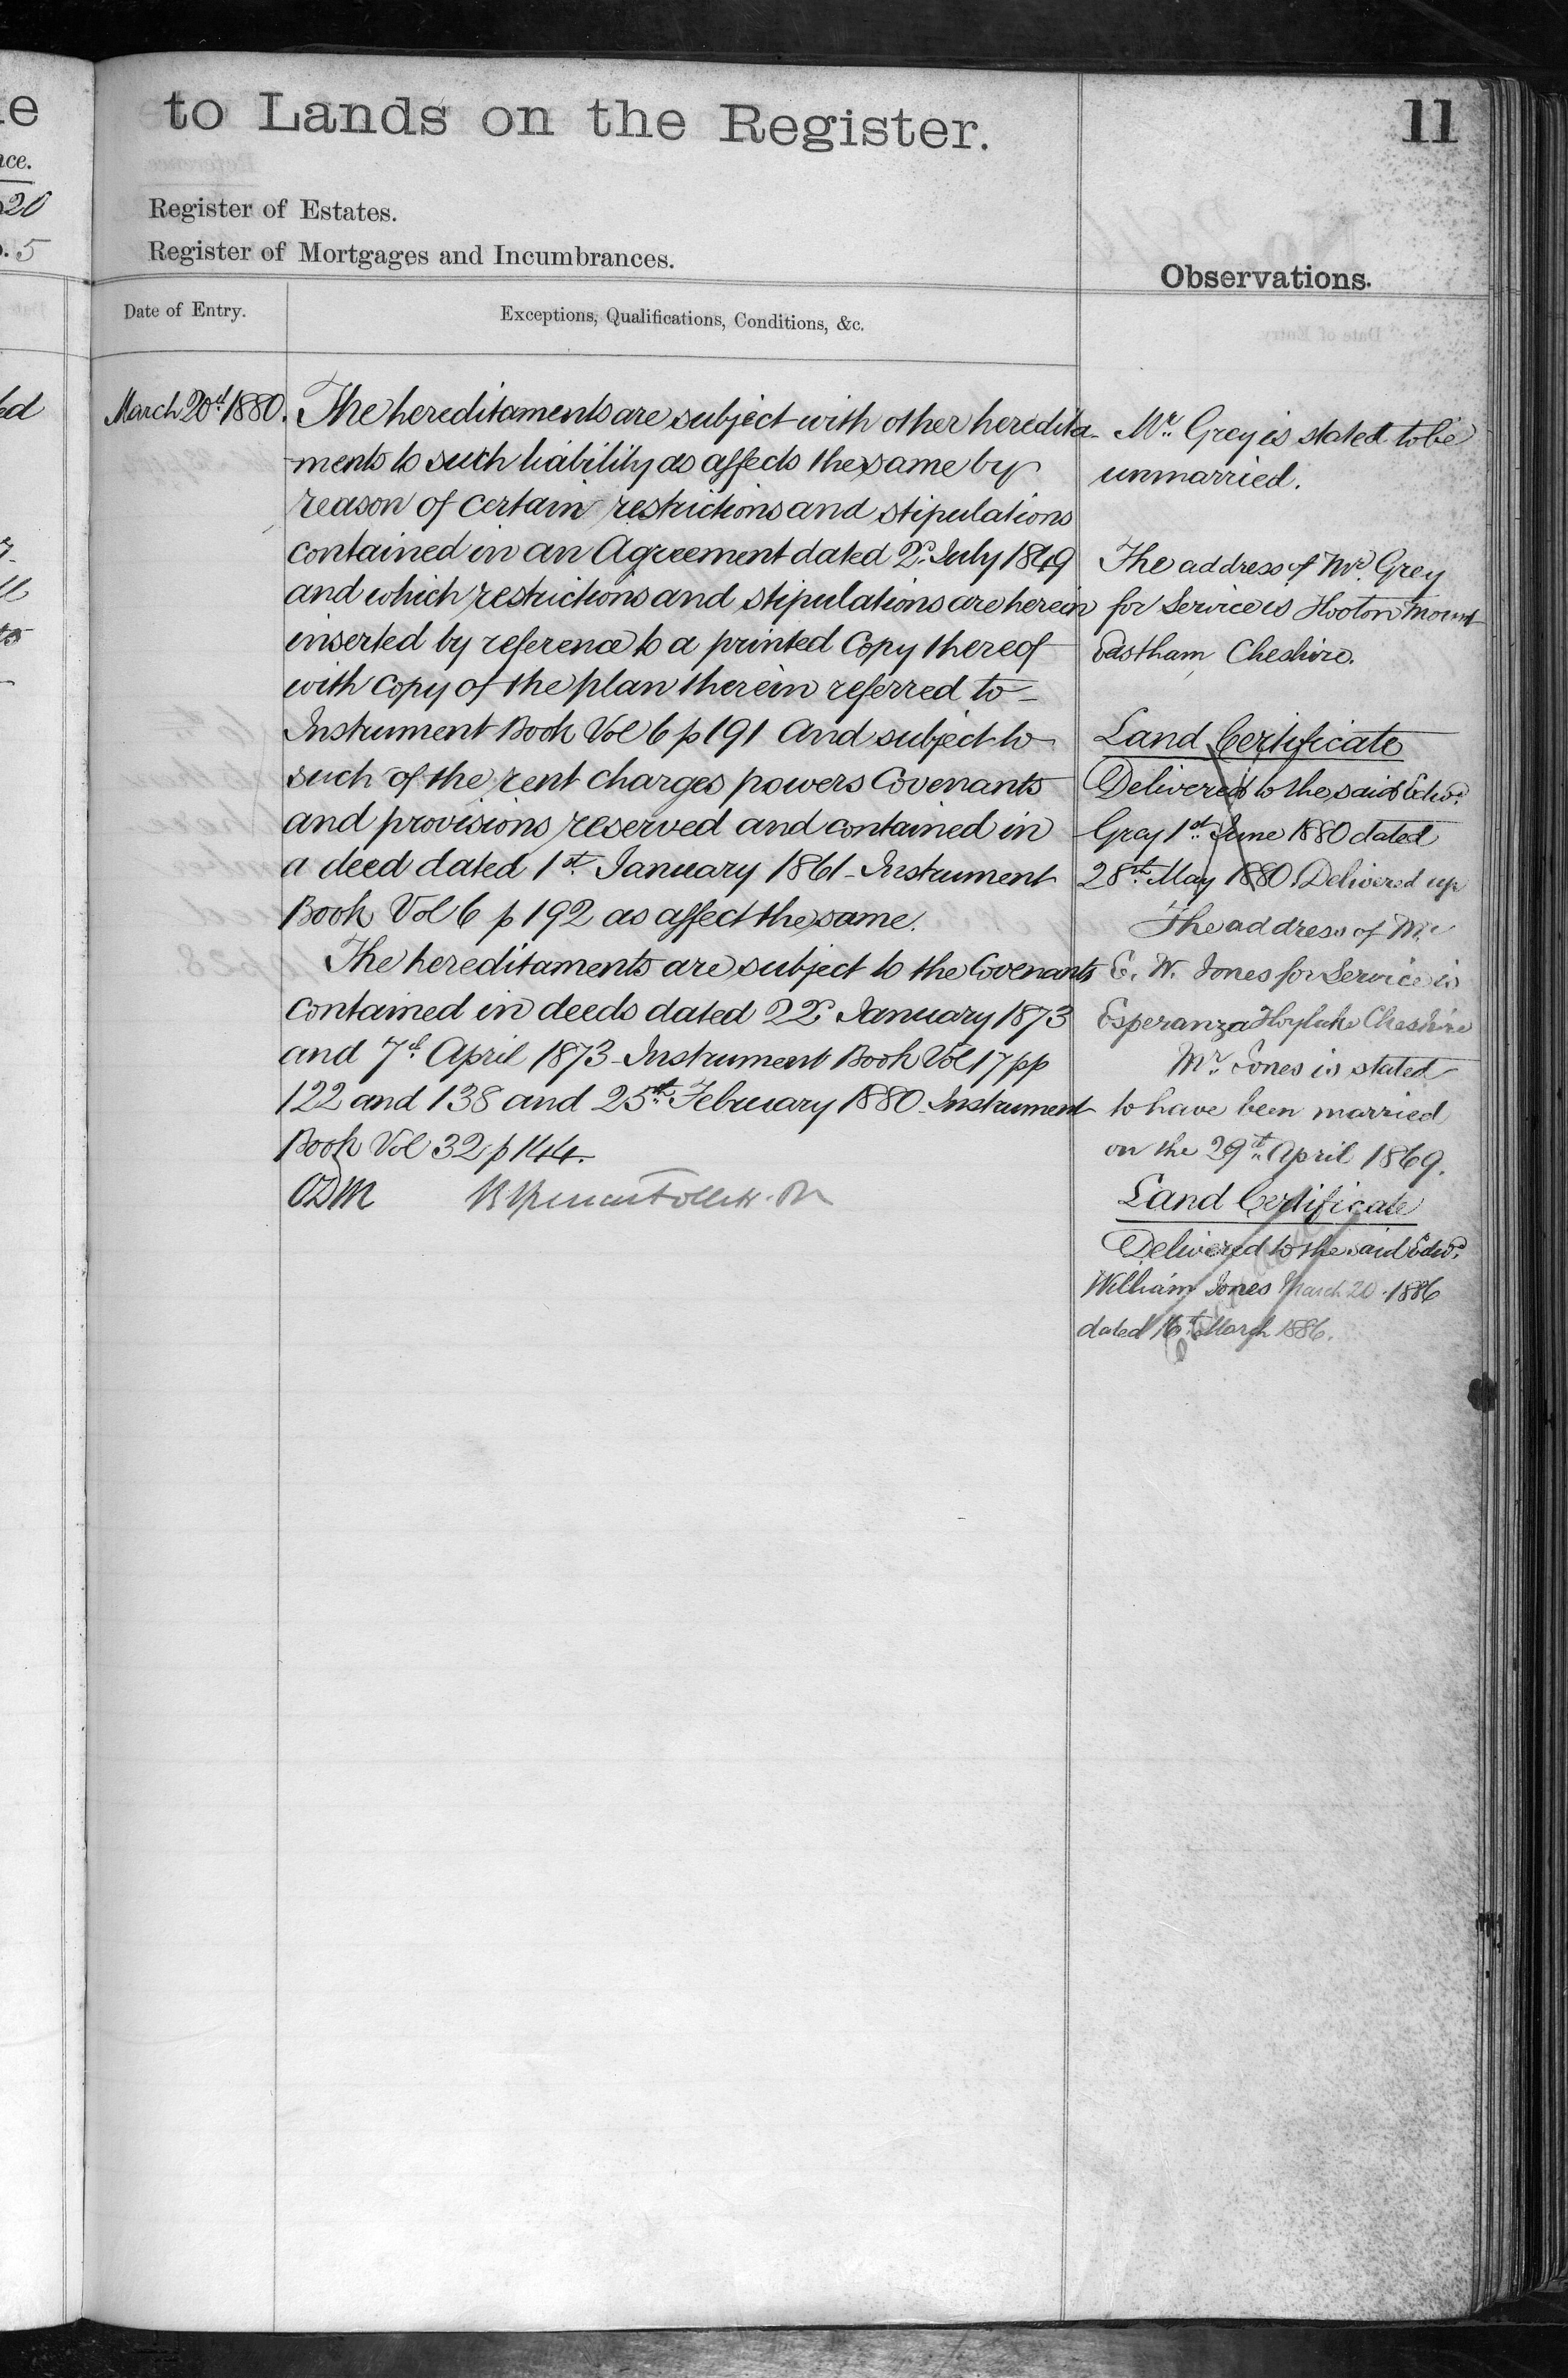 to Lands on the Register.
11
Register of Estates.
Register of Mortgages and Incumbrances.
Observations.
Date of Entry.
Exceptions, Qualifications, Conditions, &c.
March 20th 1880.
The hereditaments are subject with other heredita-
ments to such liability as affects the same by
reason of certain restrictions and stipulations
contained in an Agreement dated 2d. July 1849
and which restrictions and stipulations are herein
inserted by reference to a printed Copy thereof
with copy of the plan therein referred to -
Instrument Book Vol 6 p 191 And subject to
such of the rent charges powers Covenants
and provisions reserved and contained in
a deed dated 1st. January 1861 - Instrument
Book Vol 6 p 192 as affect the same.
The hereditaments are subject to the Covenants
contained in deeds dated 22d January 1873
and 7th April 1873 - Instrument Book Vol 17 pp
122 and 138 and 25th February 1880 Instrument
Book Vol 32 p 144.
ODM
Mr. Grey is stated to be
unmarried.
The address of Mr. Grey
for Service is Hooton Mount
Eastham Cheshire.
Land Certificate
Delivered to the said Edwd.
Grey 1st. June 1880 dated
28th. May 1880. Delivered up
The address of Mr
E. W. Jones for Service is
Esperanza Hoylake Cheshire
Mr. Jones is stated
to have been married
on the 29th April 1869.
Land Certificate
Delivered to the said Edwd.
William Jones March 20. 1886
dated 16th March 1886.